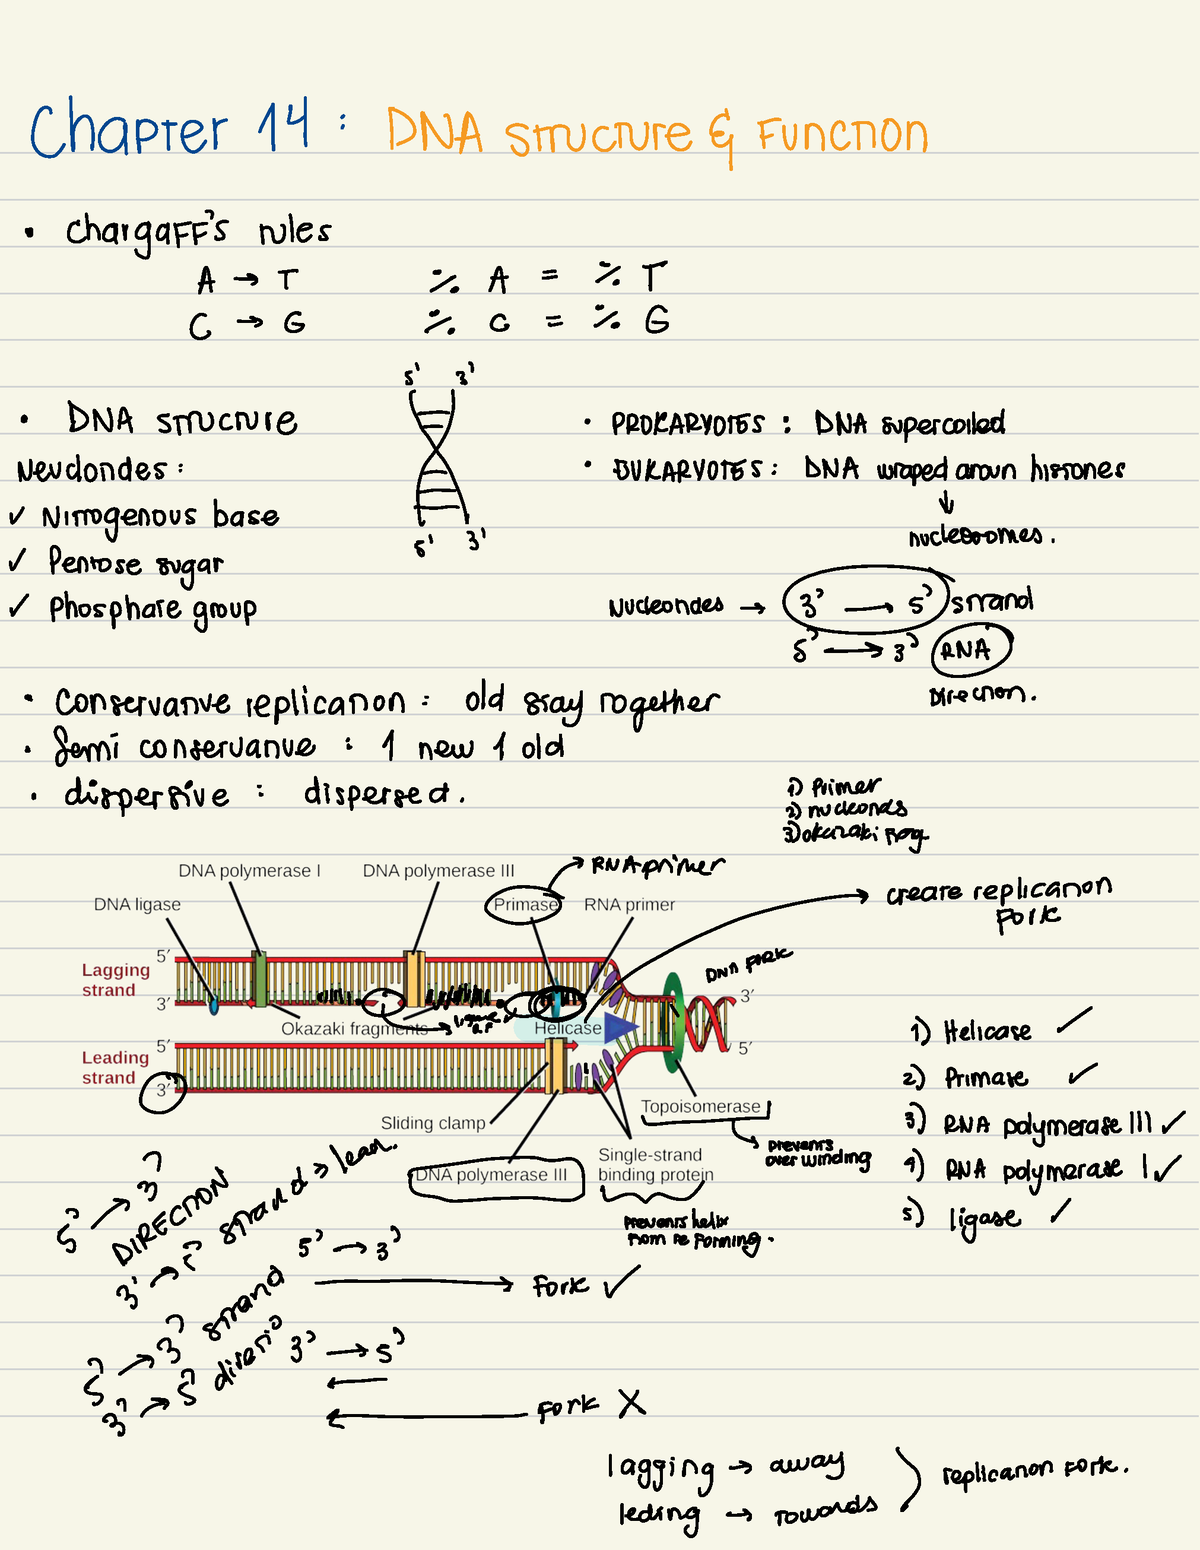 Chapter 14: DNA structure & Function
• Chargaff's rules
A → T % A = % T
C → G % C = % G
5' 3'
• DNA structure
Neuclotides:
✓ Nitrogenous base
✓ Pentose sugar
✓ Phosphate group
5' 3'
• PROKARYOTES: DNA supercoiled
• EUKARYOTES: DNA wraped aroun histones
↓
nucleosomes.
Nucleotides → 3' → 5' strand
5' → 3' RNA
Direction.
• Conservative replication: old stay together
• Semi conservative: 1 new 1 old
• dispersive: dispersed.
1) Primer
2) nucleotids
3) okazaki frag
DNA polymerase I DNA polymerase III → RNA primer
DNA ligase Primase RNA primer → create replication
Fork
5'
Lagging
strand
3'
DNA Fork
3'
Okazaki fragments Helicase
5'
5'
Leading
strand
3'
Topoisomerase
Sliding clamp
→ prevents
over winding
DNA polymerase III
Single-strand
binding protein
prevents helix
from re forming.
1) Helicase ✓
2) Primase ✓
3) RNA polymerase III ✓
4) RNA polymerase I ✓
5) ligase ✓
5' → 3'
DIRECTION
3' → 5' strand → lead.
5' → 3'
→ Fork ✓
5' → 3' strand
3' → 5'
3' → 5'
←
← Fork X
lagging → away
leding → towards
replication fork.